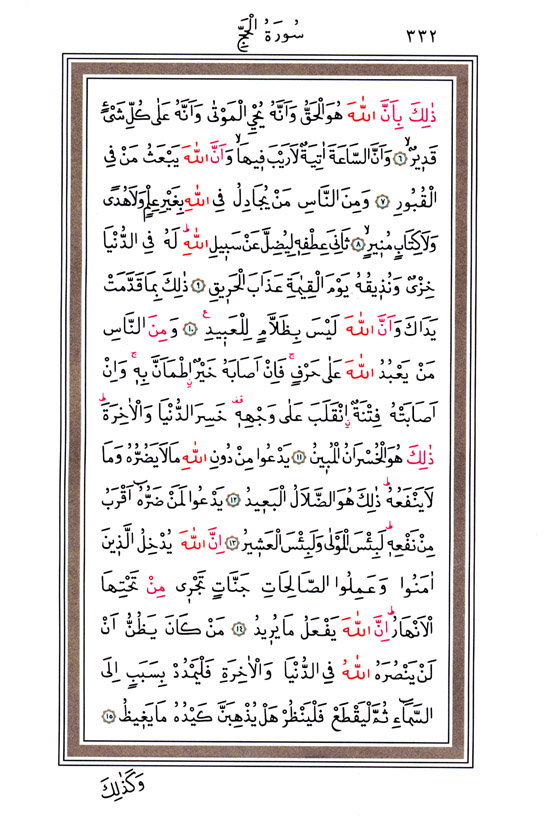 سُورَةُ الْحَجِّ ٣٣٢
ذٰلِكَ بِاَنَّ اللّٰهَ هُوَ الْحَقُّ وَاَنَّهُ يُحْيِ الْمَوْتٰى وَاَنَّهُ عَلٰى كُلِّ شَىْءٍ
قَد۪يرٌۙ ﴿٦﴾ وَاَنَّ السَّاعَةَ اٰتِيَةٌ لَا رَيْبَ ف۪يهَاۙ وَاَنَّ اللّٰهَ يَبْعَثُ مَنْ فِى
الْقُبُورِ ﴿٧﴾ وَمِنَ النَّاسِ مَنْ يُجَادِلُ فِى اللّٰهِ بِغَيْرِ عِلْمٍ وَلَا هُدًى
وَلَا كِتَابٍ مُن۪يرٍۙ ﴿٨﴾ ثَانِىَ عِطْفِه۪ لِيُضِلَّ عَنْ سَب۪يلِ اللّٰهِۜ لَهُ فِى الدُّنْيَا
خِزْىٌ وَنُذ۪يقُهُ يَوْمَ الْقِيٰمَةِ عَذَابَ الْحَر۪يقِ ﴿٩﴾ ذٰلِكَ بِمَا قَدَّمَتْ
يَدَاكَ وَاَنَّ اللّٰهَ لَيْسَ بِظَلَّامٍ لِلْعَب۪يدِ۟ ﴿١٠﴾ وَمِنَ النَّاسِ
مَنْ يَعْبُدُ اللّٰهَ عَلٰى حَرْفٍۚ فَاِنْ اَصَابَهُ خَيْرٌۨ اطْمَاَنَّ بِه۪ۚ وَاِنْ
اَصَابَتْهُ فِتْنَةٌۨ انْقَلَبَ عَلٰى وَجْهِه۪۠ خَسِرَ الدُّنْيَا وَالْاٰخِرَةَۜ
ذٰلِكَ هُوَ الْخُسْرَانُ الْمُب۪ينُ ﴿١١﴾ يَدْعُوا مِنْ دُونِ اللّٰهِ مَا لَا يَضُرُّهُ وَمَا
لَا يَنْفَعُهُۜ ذٰلِكَ هُوَ الضَّلَالُ الْبَع۪يدُ ﴿١٢﴾ يَدْعُوا لَمَنْ ضَرُّهُٓ اَقْرَبُ
مِنْ نَفْعِه۪ۜ لَبِئْسَ الْمَوْلٰى وَلَبِئْسَ الْعَش۪يرُ ﴿١٣﴾ اِنَّ اللّٰهَ يُدْخِلُ الَّذ۪ينَ
اٰمَنُوا وَعَمِلُوا الصَّالِحَاتِ جَنَّاتٍ تَجْر۪ى مِنْ تَحْتِهَا
الْاَنْهَارُۜ اِنَّ اللّٰهَ يَفْعَلُ مَا يُر۪يدُ ﴿١٤﴾ مَنْ كَانَ يَظُنُّ اَنْ
لَنْ يَنْصُرَهُ اللّٰهُ فِى الدُّنْيَا وَالْاٰخِرَةِ فَلْيَمْدُدْ بِسَبَبٍ اِلَى
السَّمَٓاءِ ثُمَّ لْيَقْطَعْ فَلْيَنْظُرْ هَلْ يُذْهِبَنَّ كَيْدُهُ مَا يَغ۪يظُ ﴿١٥﴾
وَكَذٰلِكَ